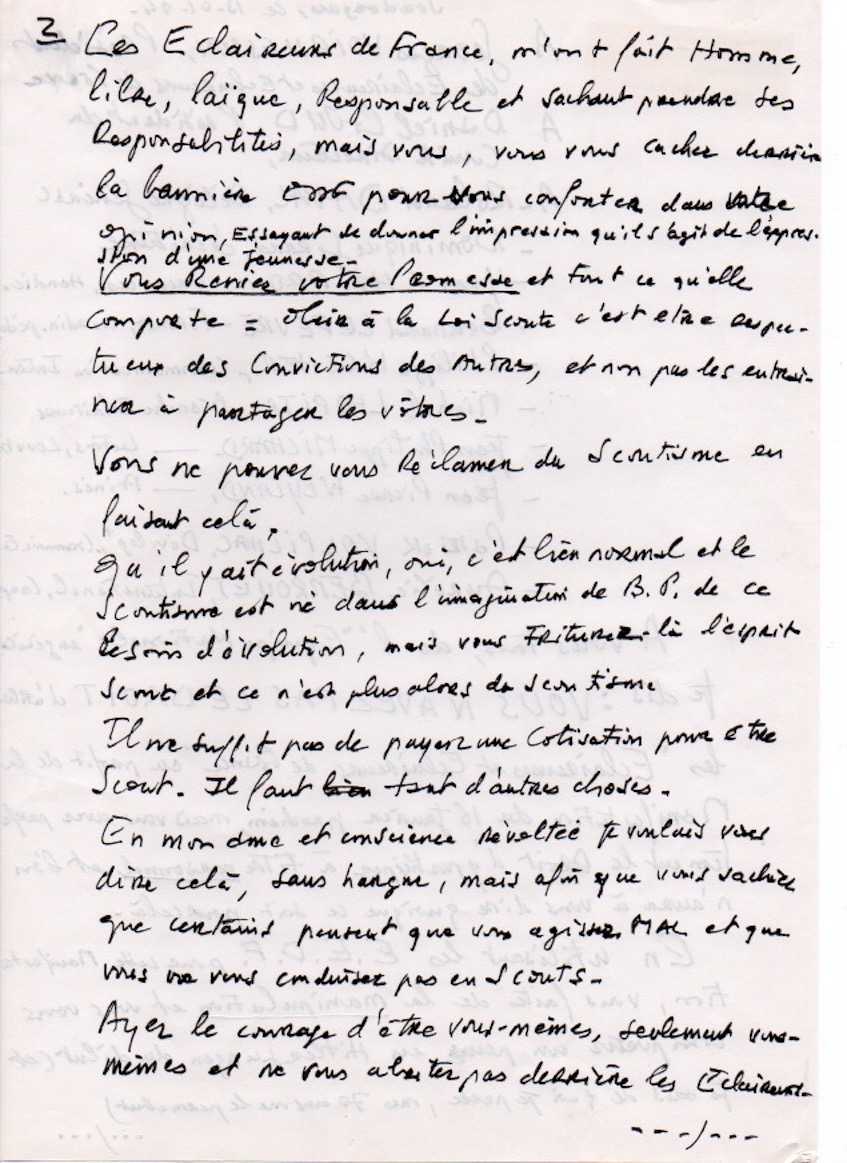 3 Les Eclaireurs de France, m'ont fait Homme,
libre, laïque, Responsable et sachant prendre ses
Responsabilités, mais vous, vous vous cachez derrière
la bannière EDF pour vous conforter dans votre
opinion, Essayant de donner l'impression qu'il s'agit de l'expres-
sion d'une jeunesse-
Vous Reniez votre Promesse et tout ce qu'elle
comporte = Obéir à la Loi Scoute c'est etre respec-
tueux des Convictions des Autres, et non pas les entrai-
ner à partager les vôtres-
Vous ne pouvez vous Réclamer du Scoutisme en
faisant celà.
Qu'il y ait évolution, oui, c'est bien normal et le
Scoutisme est né dans l'imagination de B.P. de ce
besoin d'évolution, mais vous TRITUREZ-là l'esprit
Scout et ce n'est plus alors du scoutisme
Il ne suffit pas de payer une Cotisation pour être
Scout. Il faut bien tant d'autres choses.
En mon âme et conscience Révoltée je voulais vous
dire celà, sans hargne, mais afin que vous sachiez
que certains pensent que vous agissez MAL et que
vous ne vous conduisez pas en Scouts.
Ayez le courage d'être vous-mêmes, seulement vous-
mêmes et ne vous abritez pas derrière les Eclaireurs-
---/---